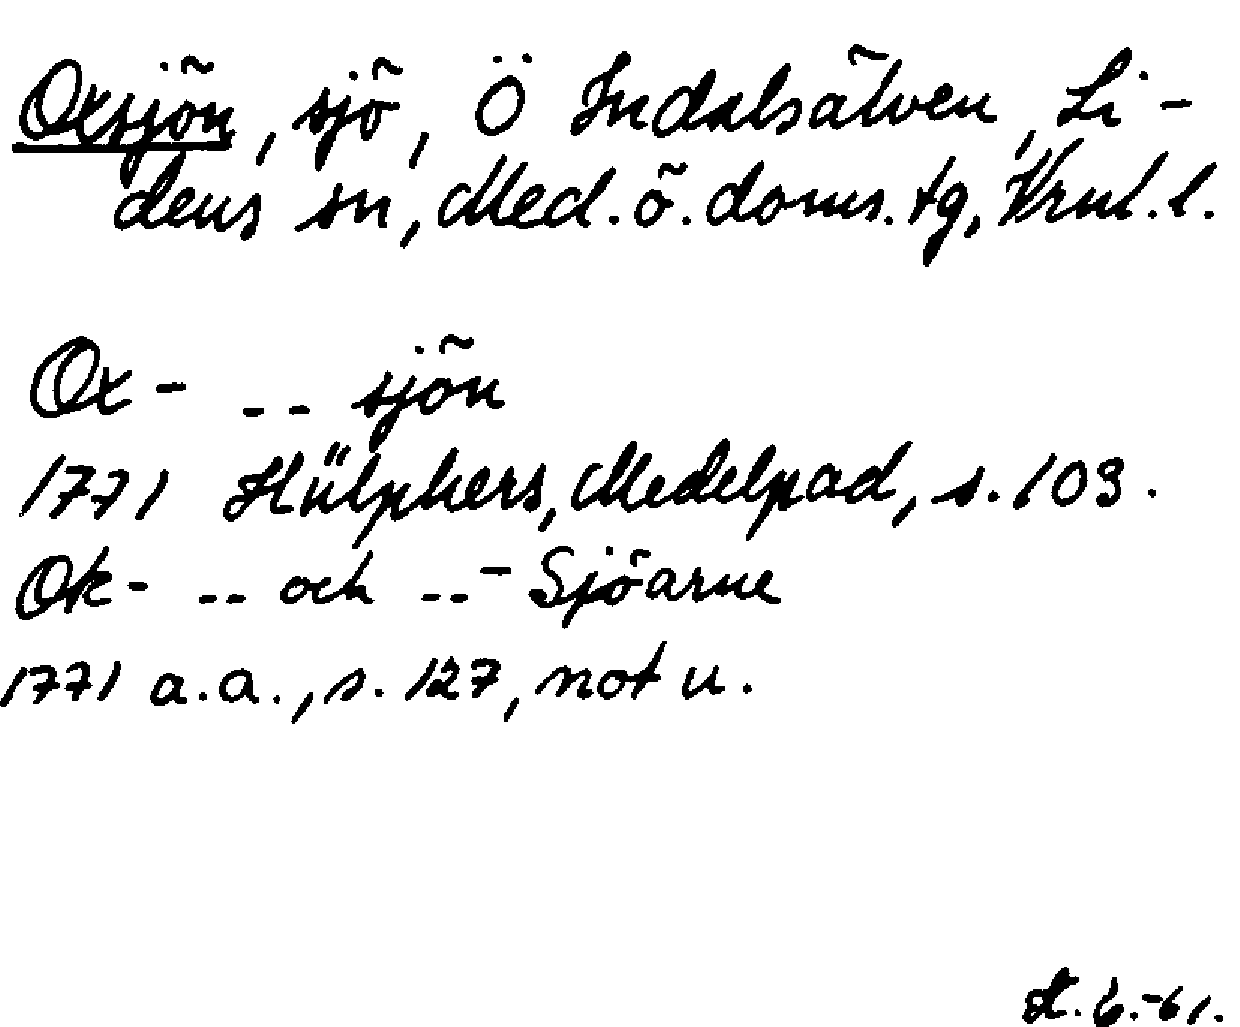 Oxsjön, sjö, Ö Indalsälven, Li-
dens sn, Med. ö. doms. tg, Vrnl. l.
Ox- -- sjön
1771 Hülphers, Medelpad, s. 103.
Ok- -- och --- Sjöarne
1771 a.a., s. 127, not u.